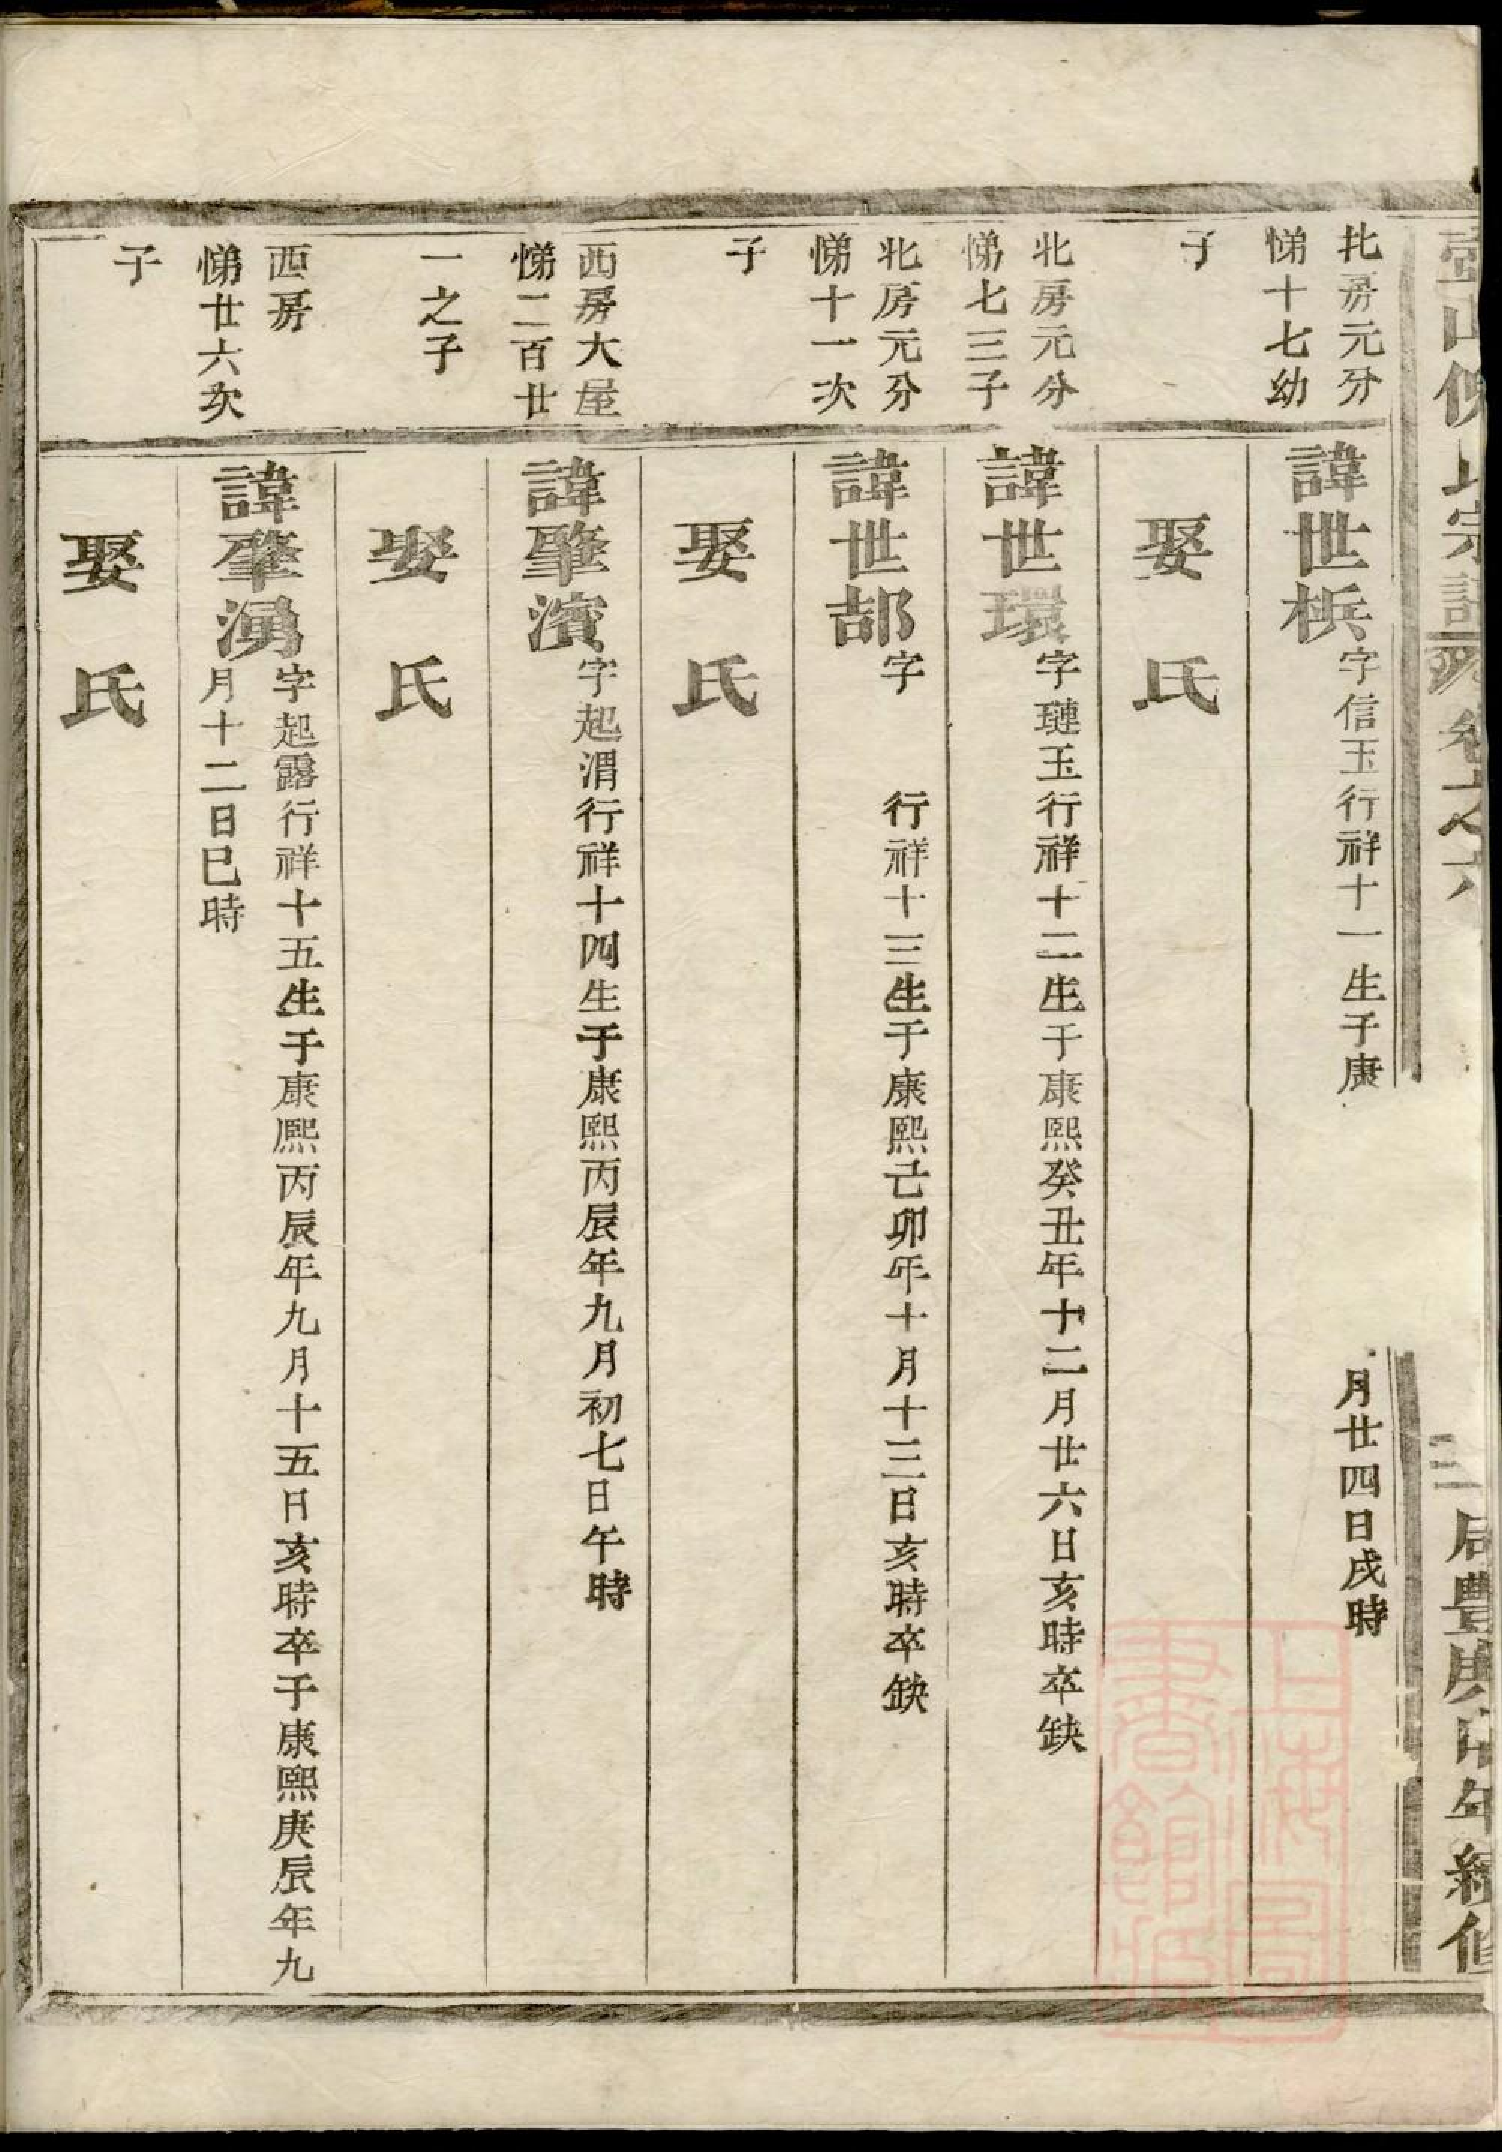 山
氏宗譜
卷之六
三
豐庚
年續修
北房元分
悌十七幼
子
諱世梹
字信玉行祥十一生于康
月廿四日戌時
娶氏
北房元分
悌七三子
諱世環
字璉玉行祥十二生于康熙癸丑年十二月廿六日亥時卒缺
北房元分
悌十一次
子
諱世郆
字 行祥十三生于康熙己卯年十月十三日亥時卒缺
娶氏
西房大屋
悌二百廿
一之子
諱肇濱
字起渭行祥十四生于康熙丙辰年九月初七日午時
娶氏
西房
悌廿六次
子
諱肇湧
字起露行祥十五生于康熙丙辰年九月十五日亥時卒于康熙庚辰年九
月十二日巳時
娶氏
上海圖
書館藏